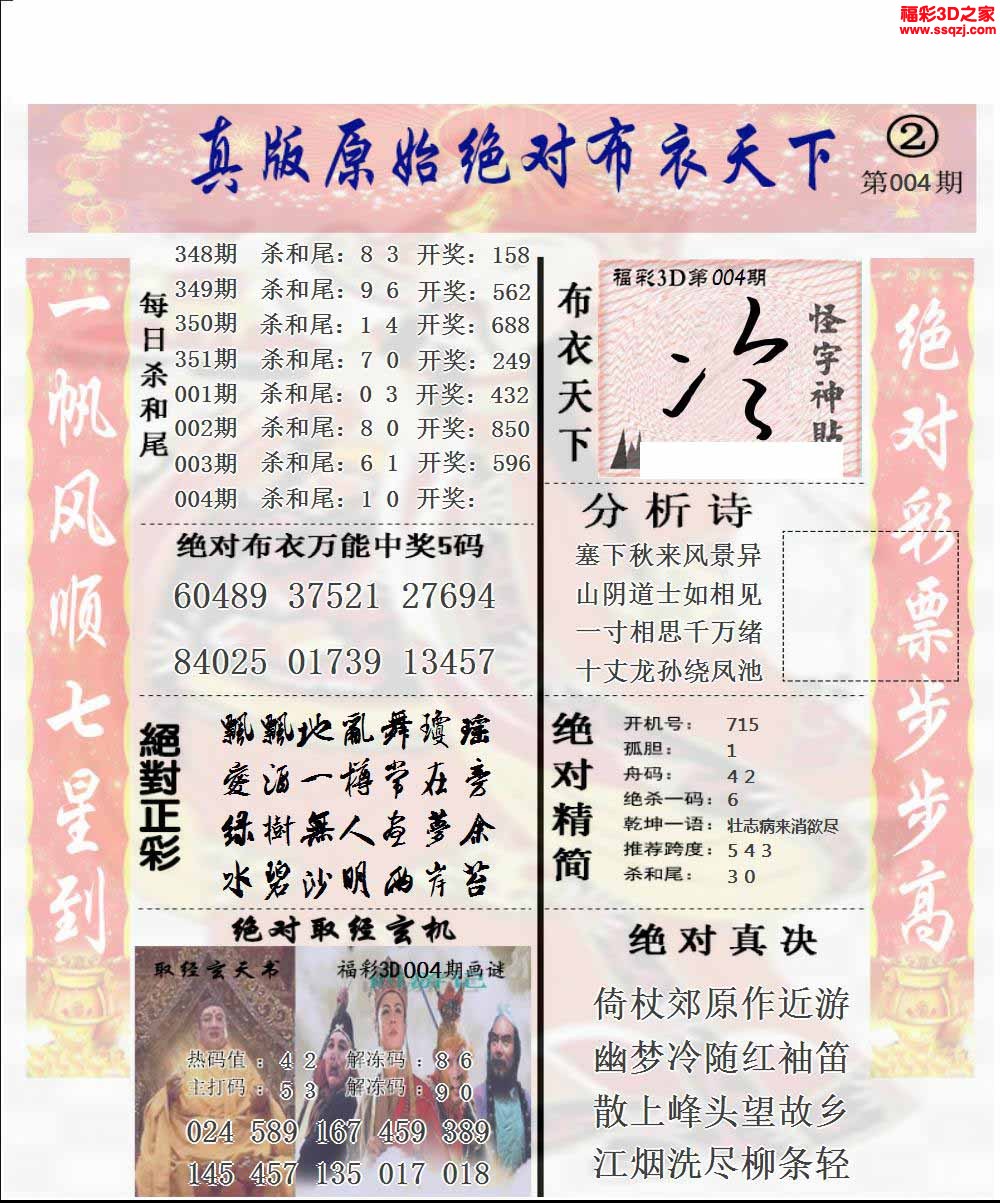 福彩3D之家
www.ssqzj.com
真版原始绝对布衣天下
②
第004期
一帆风顺七星到
每日杀和尾
348期 杀和尾：8 3 开奖：158
349期 杀和尾：9 6 开奖：562
350期 杀和尾：1 4 开奖：688
351期 杀和尾：7 0 开奖：249
001期 杀和尾：0 3 开奖：432
002期 杀和尾：8 0 开奖：850
003期 杀和尾：6 1 开奖：596
004期 杀和尾：1 0 开奖：
绝对布衣万能中奖5码
60489 37521 27694
84025 01739 13457
絕對正彩
飄飄地亂舞瓊瑶
愛酒一樽常在旁
绿樹無人晝夢余
水碧沙明两岸苔
绝对取经玄机
取经玄天书
福彩3D004期画谜
热码值：4 2 解冻码：8 6
主打码：5 3 解冻码：9 0
024 589 167 459 389
145 457 135 017 018
布衣天下
福彩3D第004期
冷
怪字神贴
分析诗
塞下秋来风景异
山阴道士如相见
一寸相思千万绪
十丈龙孙绕凤池
绝对精简
开机号： 715
孤胆： 1
舟码： 4 2
绝杀一码：6
乾坤一语：壮志病来消欲尽
推荐跨度：5 4 3
杀和尾： 3 0
绝对真决
倚杖郊原作近游
幽梦冷随红袖笛
散上峰头望故乡
江烟洗尽柳条轻
绝对彩票步步高